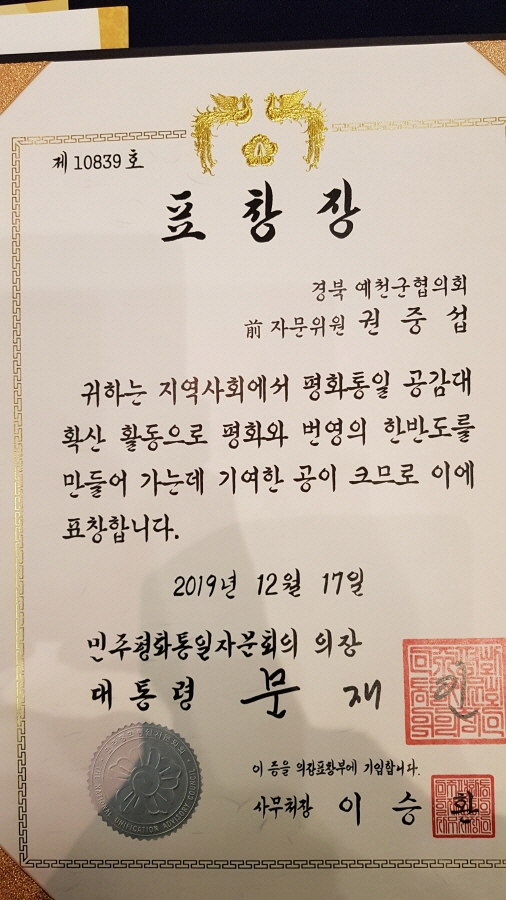 제 10839 호
표 창 장
경북 예천군협의회
前 자문위원 권 중 섭
귀하는 지역사회에서 평화통일 공감대
확산 활동으로 평화와 번영의 한반도를
만들어 가는데 기여한 공이 크므로 이에
표창합니다.
2019년 12월 17일
민주평화통일자문회의 의장
대 통 령 문 재 인
이 증을 의장표창부에 기입합니다.
사무처장 이 승 환
UNIFICATION ADVISORY COUNCIL